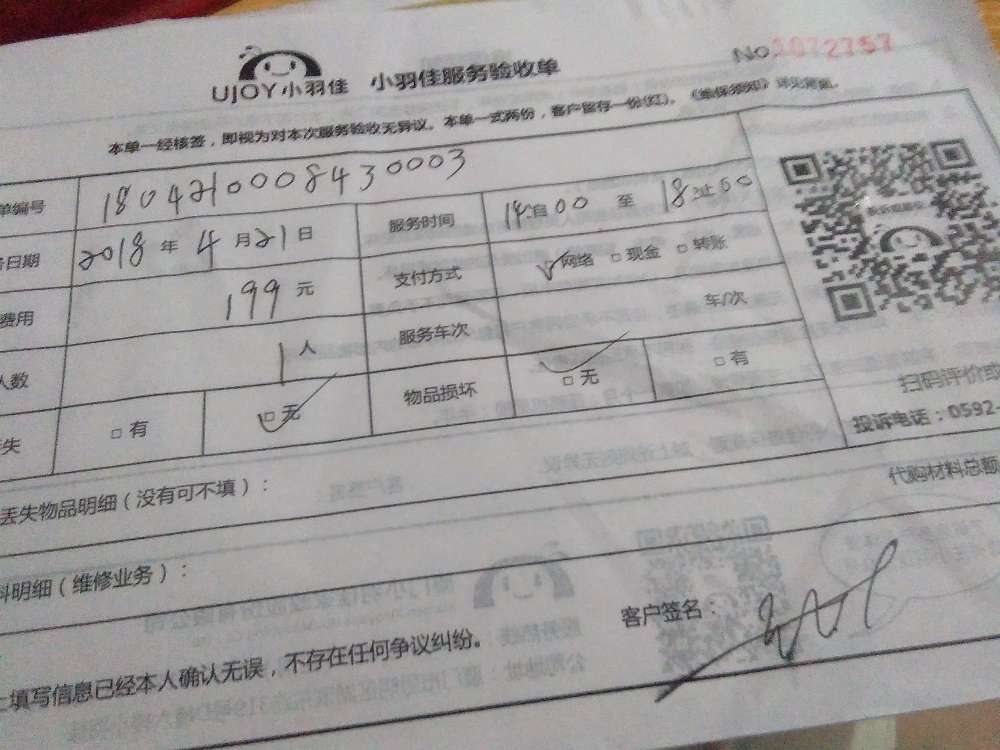 No.1072757
UJOY小羽佳 小羽佳服务验收单
本单一经核签，即视为对本次服务验收无异议。本单一式两份，客户留存一份(红)。《维保须知》详见背面。
单编号 1804210008430003
日期 2018年4月21日 服务时间 14:00 至 18:00
费用 199元 支付方式 √网络 □现金 □转账
人数 1人 服务车次 车/次
失 □有 □无 √ 物品损坏 □无 √ □有
扫码评价或
投诉电话：0592
丢失物品明细（没有可不填）： 代购材料总额
料明细（维修业务）：
客户签名：
上填写信息已经本人确认无误，不存在任何争议纠纷。